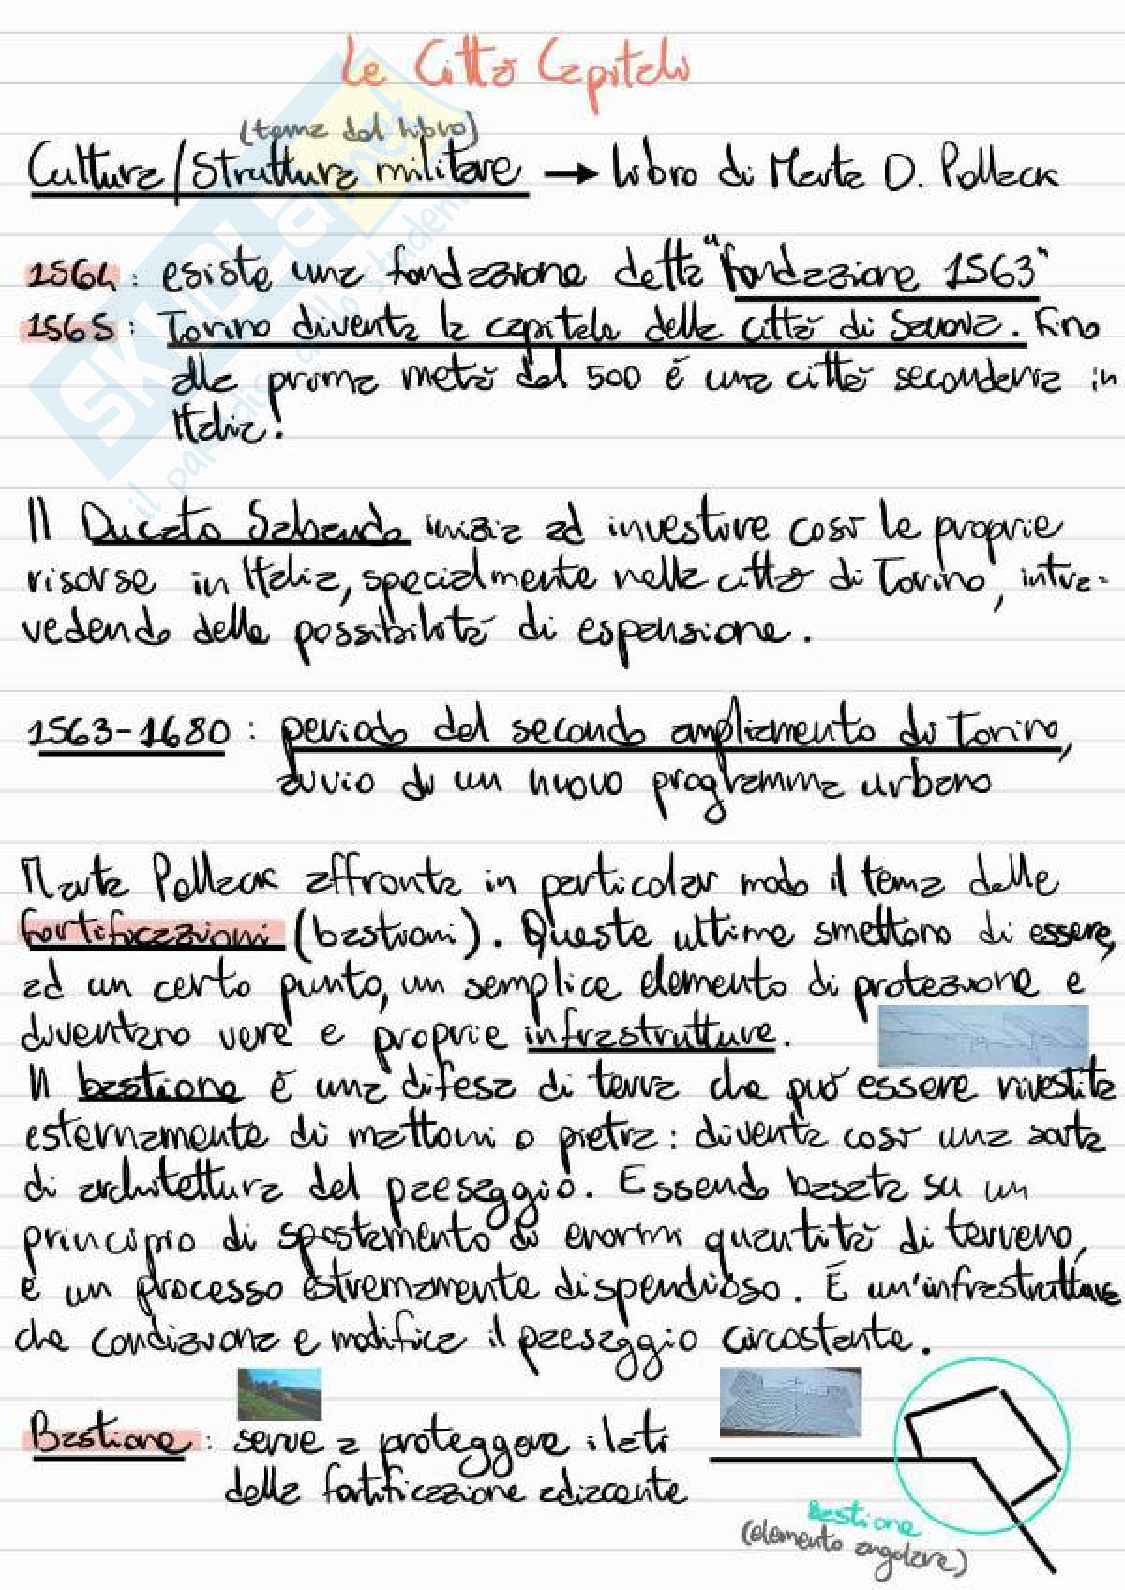 Le Città Capitali
(tema del libro)
Cultura/Struttura militare → libro di Marta D. Pollack
1564: esiste una fondazione detta "fondazione 1563"
1565: Torino diventa la capitale della città di Savoia. Fino
alla prima metà del 500 é una città secondaria in
Italia!
Il Ducato Sabaudo inizia ad investire così le proprie
risorse in Italia, specialmente nella città di Torino, intra-
vedendo delle possibilità di espansione.
1563-1680: periodo del secondo ampliamento di Torino,
avvio di un nuovo programma urbano
Marta Pollack affronta in particolar modo il tema delle
fortificazioni (bastioni). Queste ultime smettono di essere,
ad un certo punto, un semplice elemento di protezione e
diventano vere e proprie infrastrutture.
Il bastione é una difesa di terra che può essere rivestita
esternamente di mattoni o pietra: diventa così una sorta
di architettura del paesaggio. Essendo basata su un
principio di spostamento di enormi quantità di terreno,
é un processo estremamente dispendioso. É un'infrastruttura
che condiziona e modifica il paesaggio circostante.
Bastione: serve a proteggere i lati
della fortificazione adiacente
Bastione
(elemento angolare)
SKUOLA.net
il paradiso dello studente